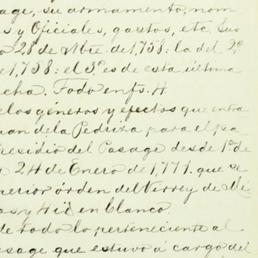 age, su armamento, nom
s y Oficiales, gastos, etc. Sus
o 28 de Nbre. de 1,738: la del 2º
e 1,738: el 3º es de esta última
echa. Todo en fs. A
e los géneros y efectos que entra
uan de la Pedriza para el pa
residio del Pasage desde 1º de
a 24 de Enero de 1,771. que se
uperior órden del Virrey de Mé
as y 412 en blanco
de todo lo perteneciente al
asage que estuvo á cargo del